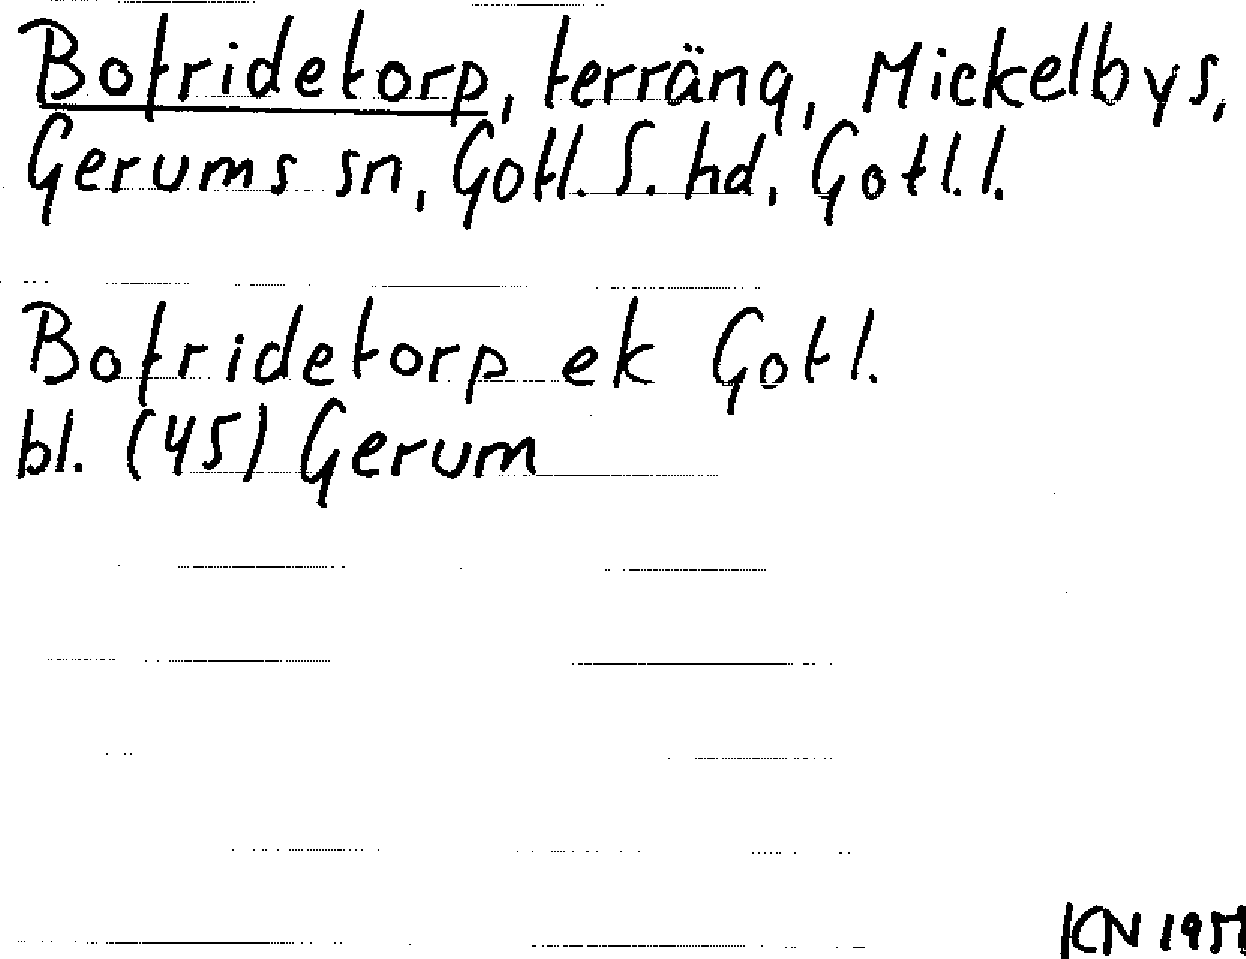 Botridetorp, terräng, Mickelbys,
Gerums sn, Gotl. S. hd, Gotl. l.
Botridetorp ek Gotl.
bl. (45) Gerum
KN